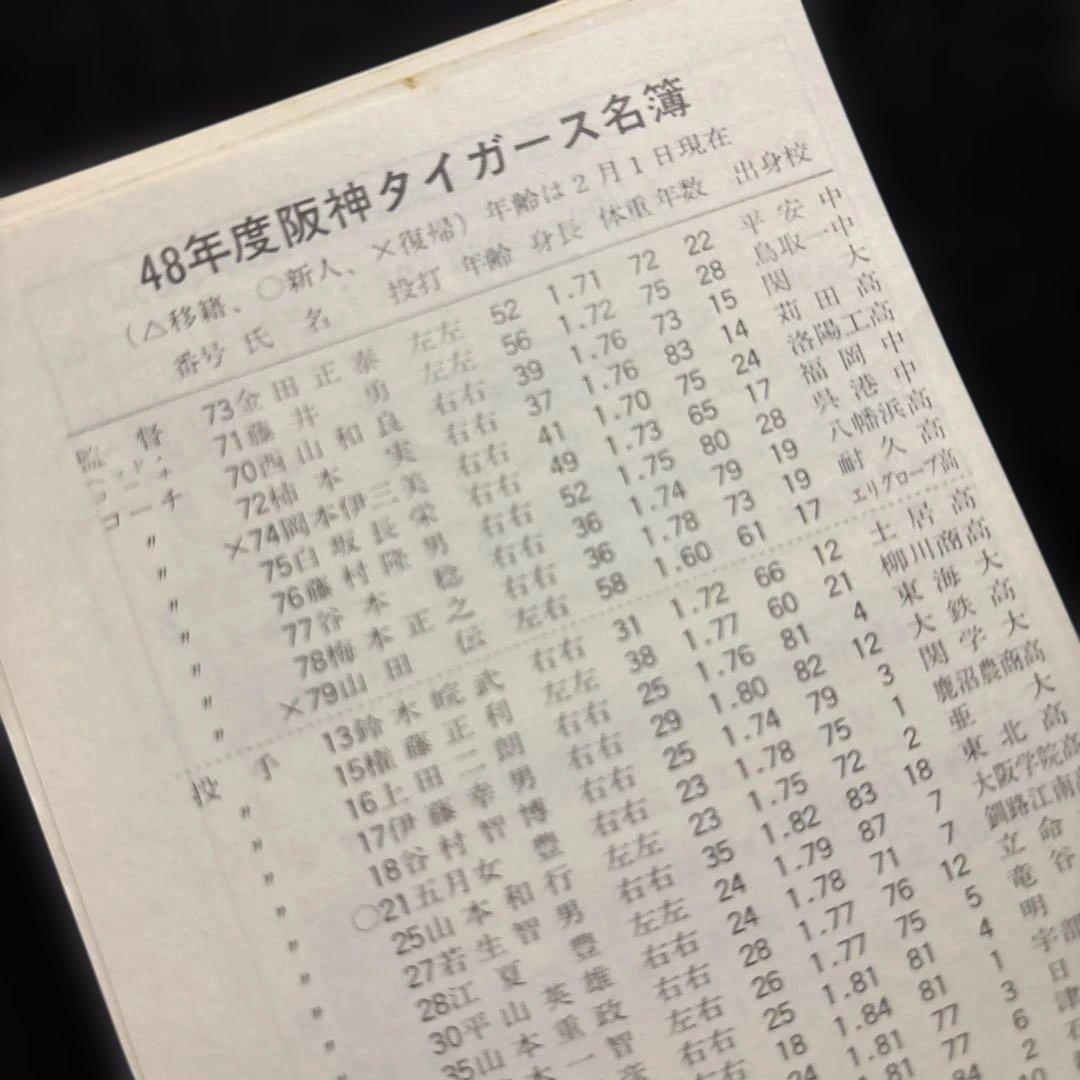 48年度阪神タイガース名簿
(△移籍、○新人、×復帰) 年齢は2月1日現在
番号 氏名 投打 年齢 身長 体重 年数 出身校
監督 73 金田正泰 左左 52 1.71 72 22 平安中
71 藤井勇 左左 56 1.72 75 28 鳥取一中
コーチ 70 西山和良 右右 39 1.76 73 15 関大
〃 72 柿本実 右右 37 1.76 83 14 苅田高
〃 ×74 岡本伊三美 右右 41 1.70 75 24 洛陽工高
〃 75 白坂長栄 右右 49 1.73 65 17 福岡中
〃 76 藤村隆男 右右 52 1.75 80 28 呉港中
〃 77 谷本稔 右右 36 1.74 79 19 八幡浜高
〃 78 梅本正之 右右 36 1.78 73 19 耐久高
〃 ×79 山田伝 左右 58 1.60 61 17 エリグローブ高
投手 13 鈴木皖武 右右 31 1.72 66 12 土居高
〃 15 権藤正利 左左 38 1.77 60 21 柳川商高
〃 16 上田二朗 右右 25 1.76 81 4 東海大
〃 17 伊藤幸男 右右 29 1.80 82 12 大鉄高
〃 18 谷村智博 右右 25 1.74 79 3 関学大
〃 ○21 五月女豊 右右 23 1.78 75 1 鹿沼農商高
〃 25 山本和行 左左 23 1.75 72 2 亜大
〃 27 若生智男 右右 35 1.82 83 18 東北高
〃 28 江夏豊 左左 24 1.79 87 7 大阪学院高
〃 30 平山英雄 右右 24 1.78 71 7 釧路江南
35 山本重政 右右 28 1.77 76 12 立命
一智 左右 26 1.77 75 5 竜谷
右右 25 1.81 81 4 明
18 1.84 81 1 宇部
24 1.81 77 3 日
1.81 77 6 津
84 2
10